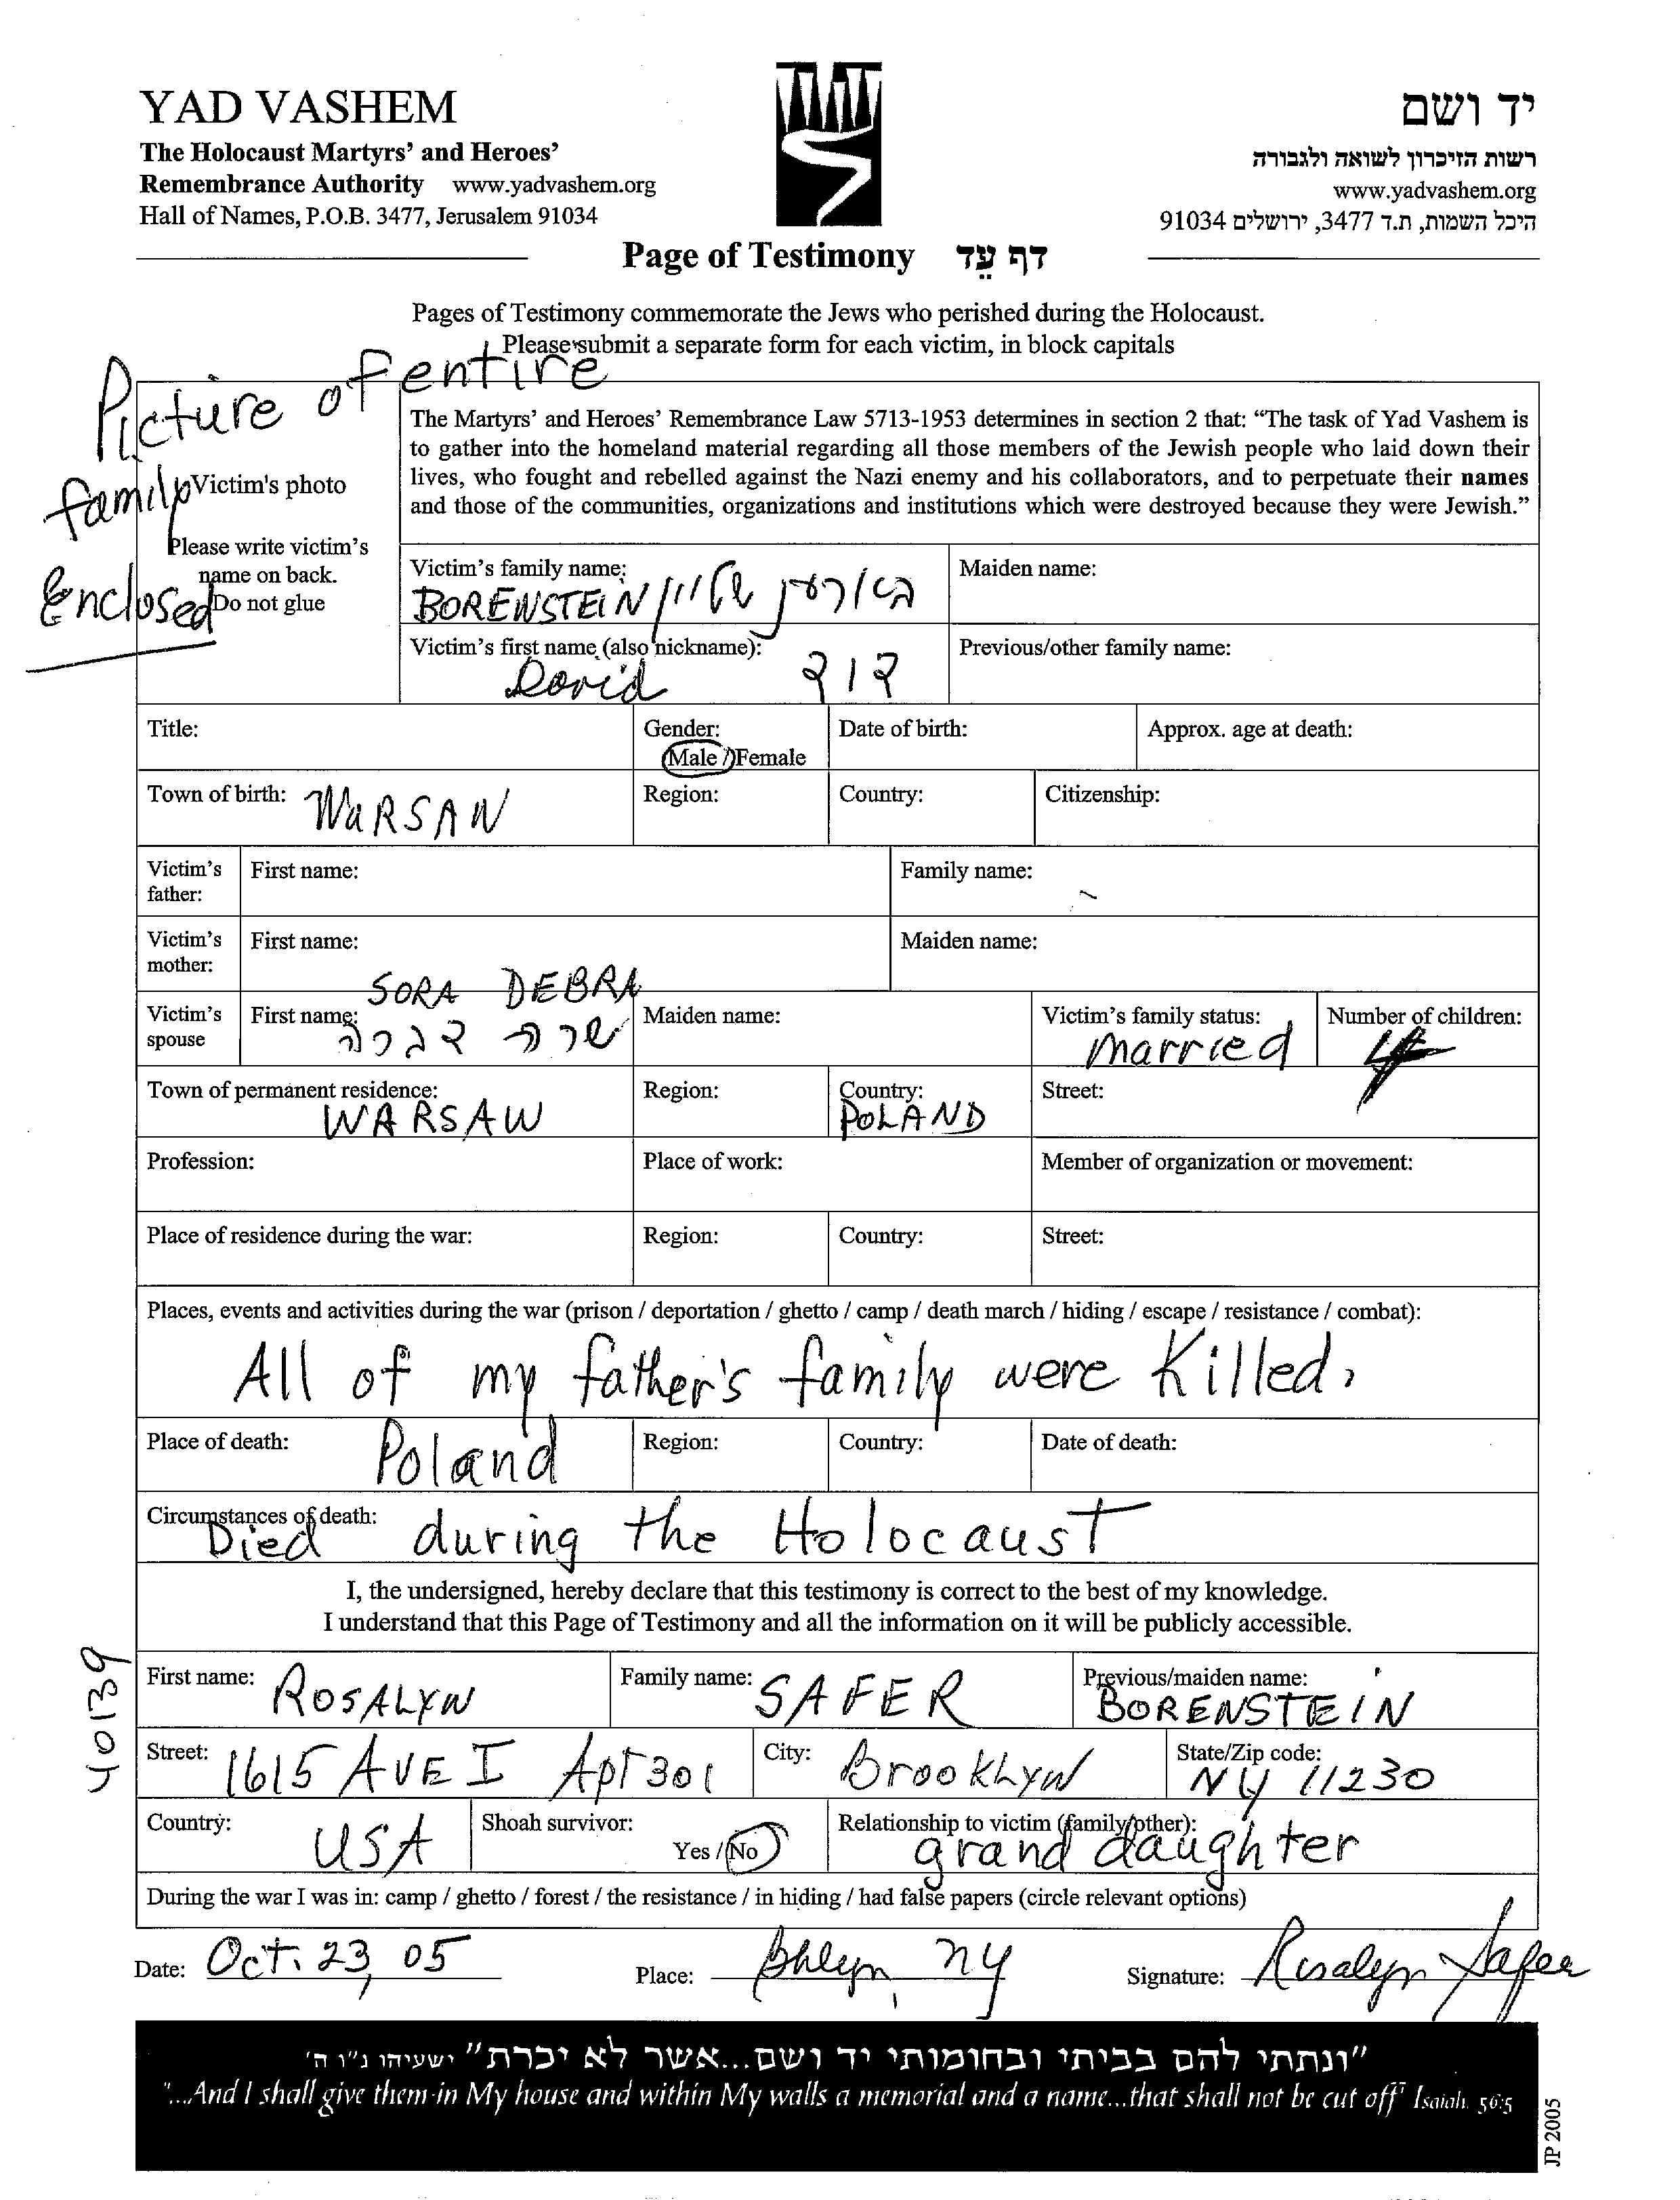 YAD VASHEM
The Holocaust Martyrs' and Heroes'
Remembrance Authority www.yadvashem.org
Hall of Names, P.O.B. 3477, Jerusalem 91034
יד ושם
רשות הזיכרון לשואה ולגבורה
www.yadvashem.org
היכל השמות, ת.ד 3477, ירושלים 91034
Page of Testimony דף עֵד
Pages of Testimony commemorate the Jews who perished during the Holocaust.
Please submit a separate form for each victim, in block capitals
Picture of entire
family
Enclosed
Victim's photo
Please write victim's
name on back.
Do not glue
The Martyrs' and Heroes' Remembrance Law 5713-1953 determines in section 2 that: "The task of Yad Vashem is
to gather into the homeland material regarding all those members of the Jewish people who laid down their
lives, who fought and rebelled against the Nazi enemy and his collaborators, and to perpetuate their names
and those of the communities, organizations and institutions which were destroyed because they were Jewish."
Victim's family name: Maiden name:
BORENSTEIN
Victim's first name (also nickname): Previous/other family name:
David דוד
Title: Gender: Date of birth: Approx. age at death:
Male / Female
Town of birth: WARSAW Region: Country: Citizenship:
Victim's father: First name: Family name:
Victim's mother: First name: Maiden name:
SORA DEBRA
Victim's spouse First name: שרה דברה Maiden name: Victim's family status: married Number of children: 4
Town of permanent residence: WARSAW Region: Country: POLAND Street:
Profession: Place of work: Member of organization or movement:
Place of residence during the war: Region: Country: Street:
Places, events and activities during the war (prison / deportation / ghetto / camp / death march / hiding / escape / resistance / combat):
All of my father's family were Killed.
Place of death: Poland Region: Country: Date of death:
Circumstances of death:
Died during the Holocaust
I, the undersigned, hereby declare that this testimony is correct to the best of my knowledge.
I understand that this Page of Testimony and all the information on it will be publicly accessible.
First name: ROSALYN Family name: SAFER Previous/maiden name: BORENSTEIN
Street: 1615 AVE I Apt 301 City: BrooKLYN State/Zip code: NY 11230
Country: USA Shoah survivor: Yes / No Relationship to victim (family/other): grand daughter
During the war I was in: camp / ghetto / forest / the resistance / in hiding / had false papers (circle relevant options)
Date: Oct. 23, 05 Place: Bklyn, NY Signature: Rosalyn Safer
40139
"ונתתי להם בביתי ובחומותי יד ושם...אשר לא יכרת" ישעיהו נ"ו ה'
"...And I shall give them in My house and within My walls a memorial and a name...that shall not be cut off" Isaiah. 56:5
JP 2005